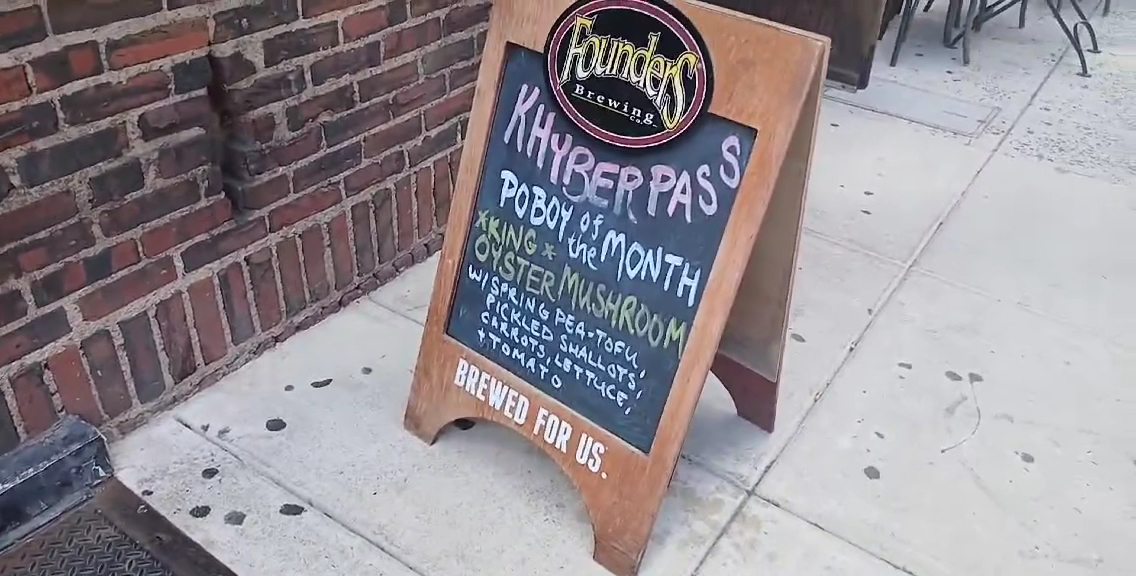 Founders
Brewing Co.
KHYBER PASS
POBOY of the MONTH
*KING*
OYSTER MUSHROOM
W/ SPRING PEA-TOFU,
PICKLED SHALLOTS,
CARROTS, LETTUCE,
+ TOMATO
BREWED FOR US.